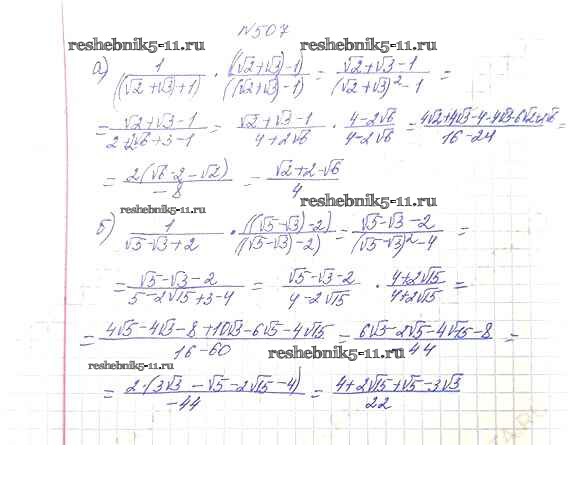 №507
reshebnik5-11.ru reshebnik5-11.ru
а) 1/((√2+√3)+1) · ((√2+√3)-1)/((√2+√3)-1) = (√2+√3-1)/((√2+√3)²-1) =
= (√2+√3-1)/(2+2√6+3-1) = (√2+√3-1)/(4+2√6) · (4-2√6)/(4-2√6) = /(16-24) =
= 2(√6-2-√2)/(-8) = (√2+2-√6)/4
reshebnik5-11.ru reshebnik5-11.ru
б) 1/(√5-√3+2) · ((√5-√3)-2)/((√5-√3)-2) = (√5-√3-2)/((√5-√3)²-4) =
= (√5-√3-2)/(5-2√15+3-4) = (√5-√3-2)/(4-2√15) · (4+2√15)/(4+2√15) =
= (4√5-4√3-8+10√3-6√5-4√15)/(16-60) = (6√3-2√5-4√15-8)/(-44) =
reshebnik5-11.ru
= 2·(3√3-√5-2√15-4)/(-44) = (4+2√15+√5-3√3)/22
reshebnik5-11.ru reshebnik5-11.ru